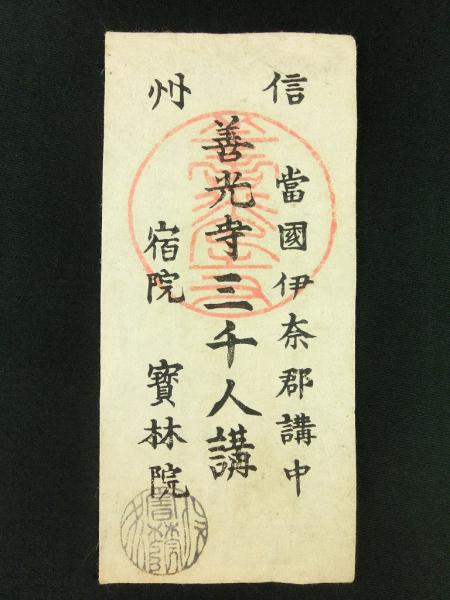 信州
當國伊奈郡講中
善光寺三千人講
宿院 寳林院